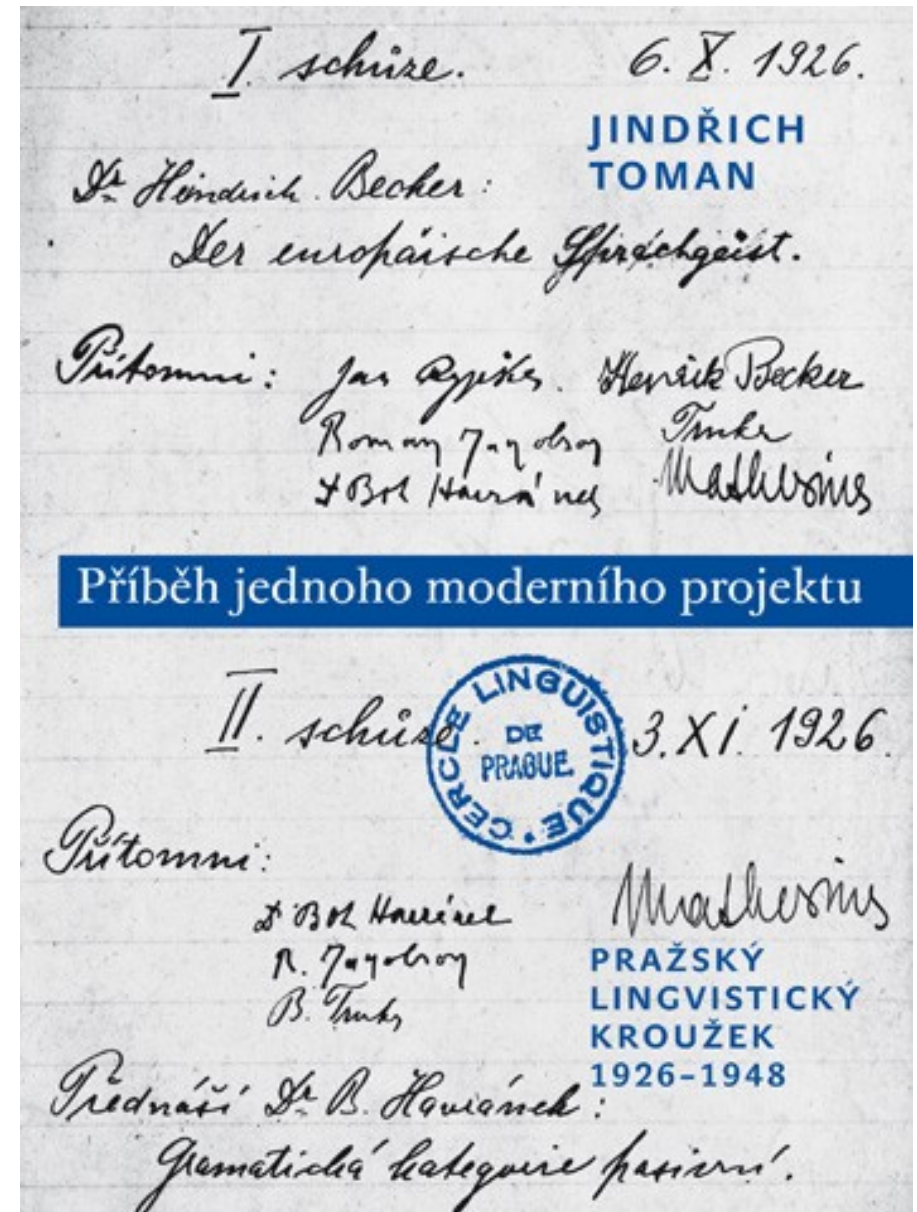 I. schůze. 6. X. 1926.
JINDŘICH
TOMAN
Dr. Heindrich Becker:
Der europäische Sprachgeist.
Přítomni: Jan Rypka. Henrik Becker
Roman Jakobson Trnka
Dr Boh Havránek Mathesius
Příběh jednoho moderního projektu
II. schůze. 3. XI. 1926.
CERCLE LINGUISTIQUE
DE
PRAGUE
Přítomni:
Dr Boh Havránek Mathesius
R. Jakobson
B. Trnka
PRAŽSKÝ
LINGVISTICKÝ
KROUŽEK
1926–1948
Přednáší Dr. B. Havránek:
Gramatická kategorie pasivní.